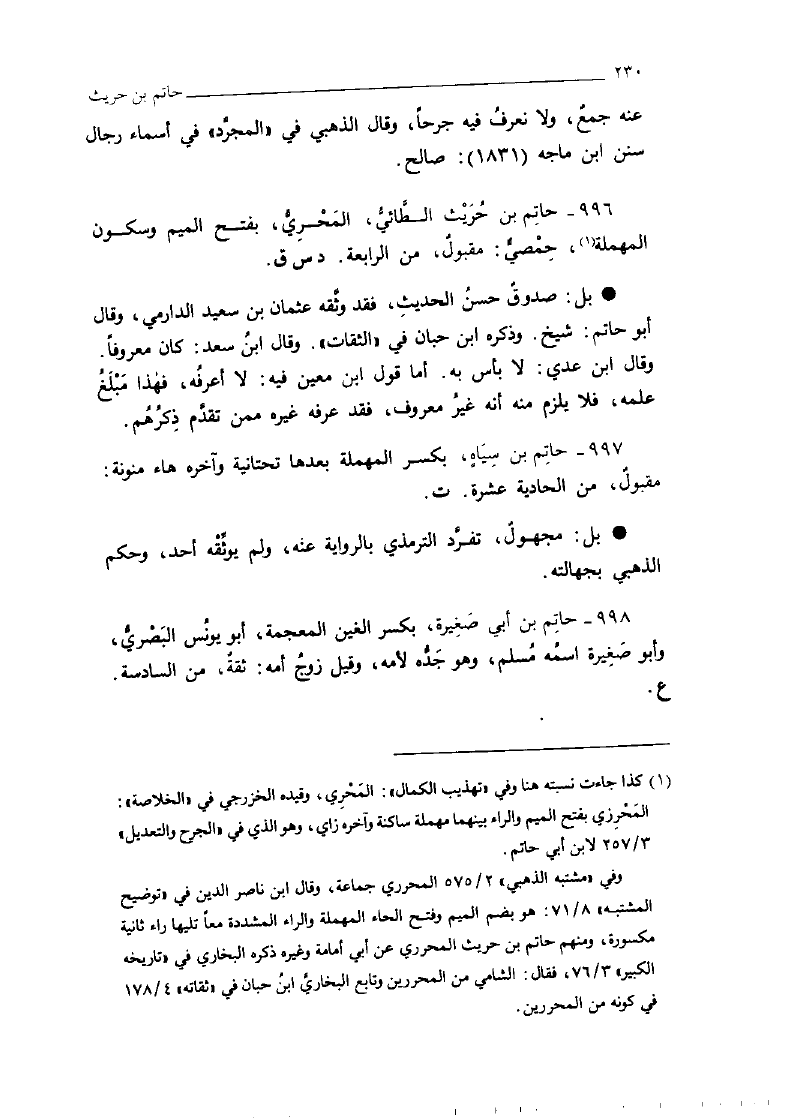 ٢٣٠
حاتم بن حريث
عنه جمعٌ، ولا نعرفُ فيه جرحاً، وقال الذهبي في «المجرَّد» في أسماء رجال
سنن ابن ماجه (١٨٣١): صالح.
٩٩٦ـ حاتِم بن حُرَيْث الـطَّائيُّ، المَحْـرِيُّ، بفتـح الميم وسكـون
المهملة(١)، حِمْصيٌّ: مقبولٌ، من الرابعة. د س ق.
● بل: صدوقٌ حسنُ الحديثِ، فقد وثَّقه عثمان بن سعيد الدارمي، وقال
أبو حاتم: شيخ. وذكره ابن حبان في «الثقات». وقال ابنُ سعد: كان معروفاً.
وقال ابن عدي: لا بأس به. أما قول ابن معين فيه: لا أعرفُه، فهٰذا مَبْلَغُ
علمه، فلا يلزم منه أنه غيرُ معروف، فقد عرفه غيره ممن تقدَّم ذِكرُهُم.
٩٩٧ـ حاتِم بن سِيَاهٍ، بكسر المهملة بعدها تحتانية وآخره هاء منونة:
مقبولٌ، من الحادية عشرة. ت.
● بل: مجهولٌ، تفرَّد الترمذي بالرواية عنه، ولم يوثِّقْه أحد، وحكم
الذهبي بجهالته.
٩٩٨ـ حاتِم بن أبي صَغِيرة، بكسر الغين المعجمة، أبو يونُس البَصْريُّ،
وأبو صَغِيرة اسمُه مُسلم، وهو جَدُّه لأمه، وقيل زوجُ أمه: ثقةٌ، من السادسة.
ع.
(١) كذا جاءت نسبته هنا وفي «تهذيب الكمال»: المَحْرِي، وقيده الخزرجي في «الخلاصة»:
المَحْرِزي بفتح الميم والراء بينهما مهملة ساكنة وآخره زاي، وهو الذي في «الجرح والتعديل»
٢٥٧/٣ لابن أبي حاتم.
وفي «مشتبه الذهبي» ٥٧٥/٢ المحرري جماعة، وقال ابن ناصر الدين في «توضيح
المشتبه» ٧١/٨: هو بضم الميم وفتح الحاء المهملة والراء المشددة معاً تليها راء ثانية
مكسورة، ومنهم حاتم بن حريث المحرري عن أبي أمامة وغيره ذكره البخاري في «تاريخه
الكبير» ٧٦/٣، فقال: الشامي من المحررين وتابع البخاريَّ ابنُ حبان في «ثقاته» ١٧٨/٤
في كونه من المحررين.